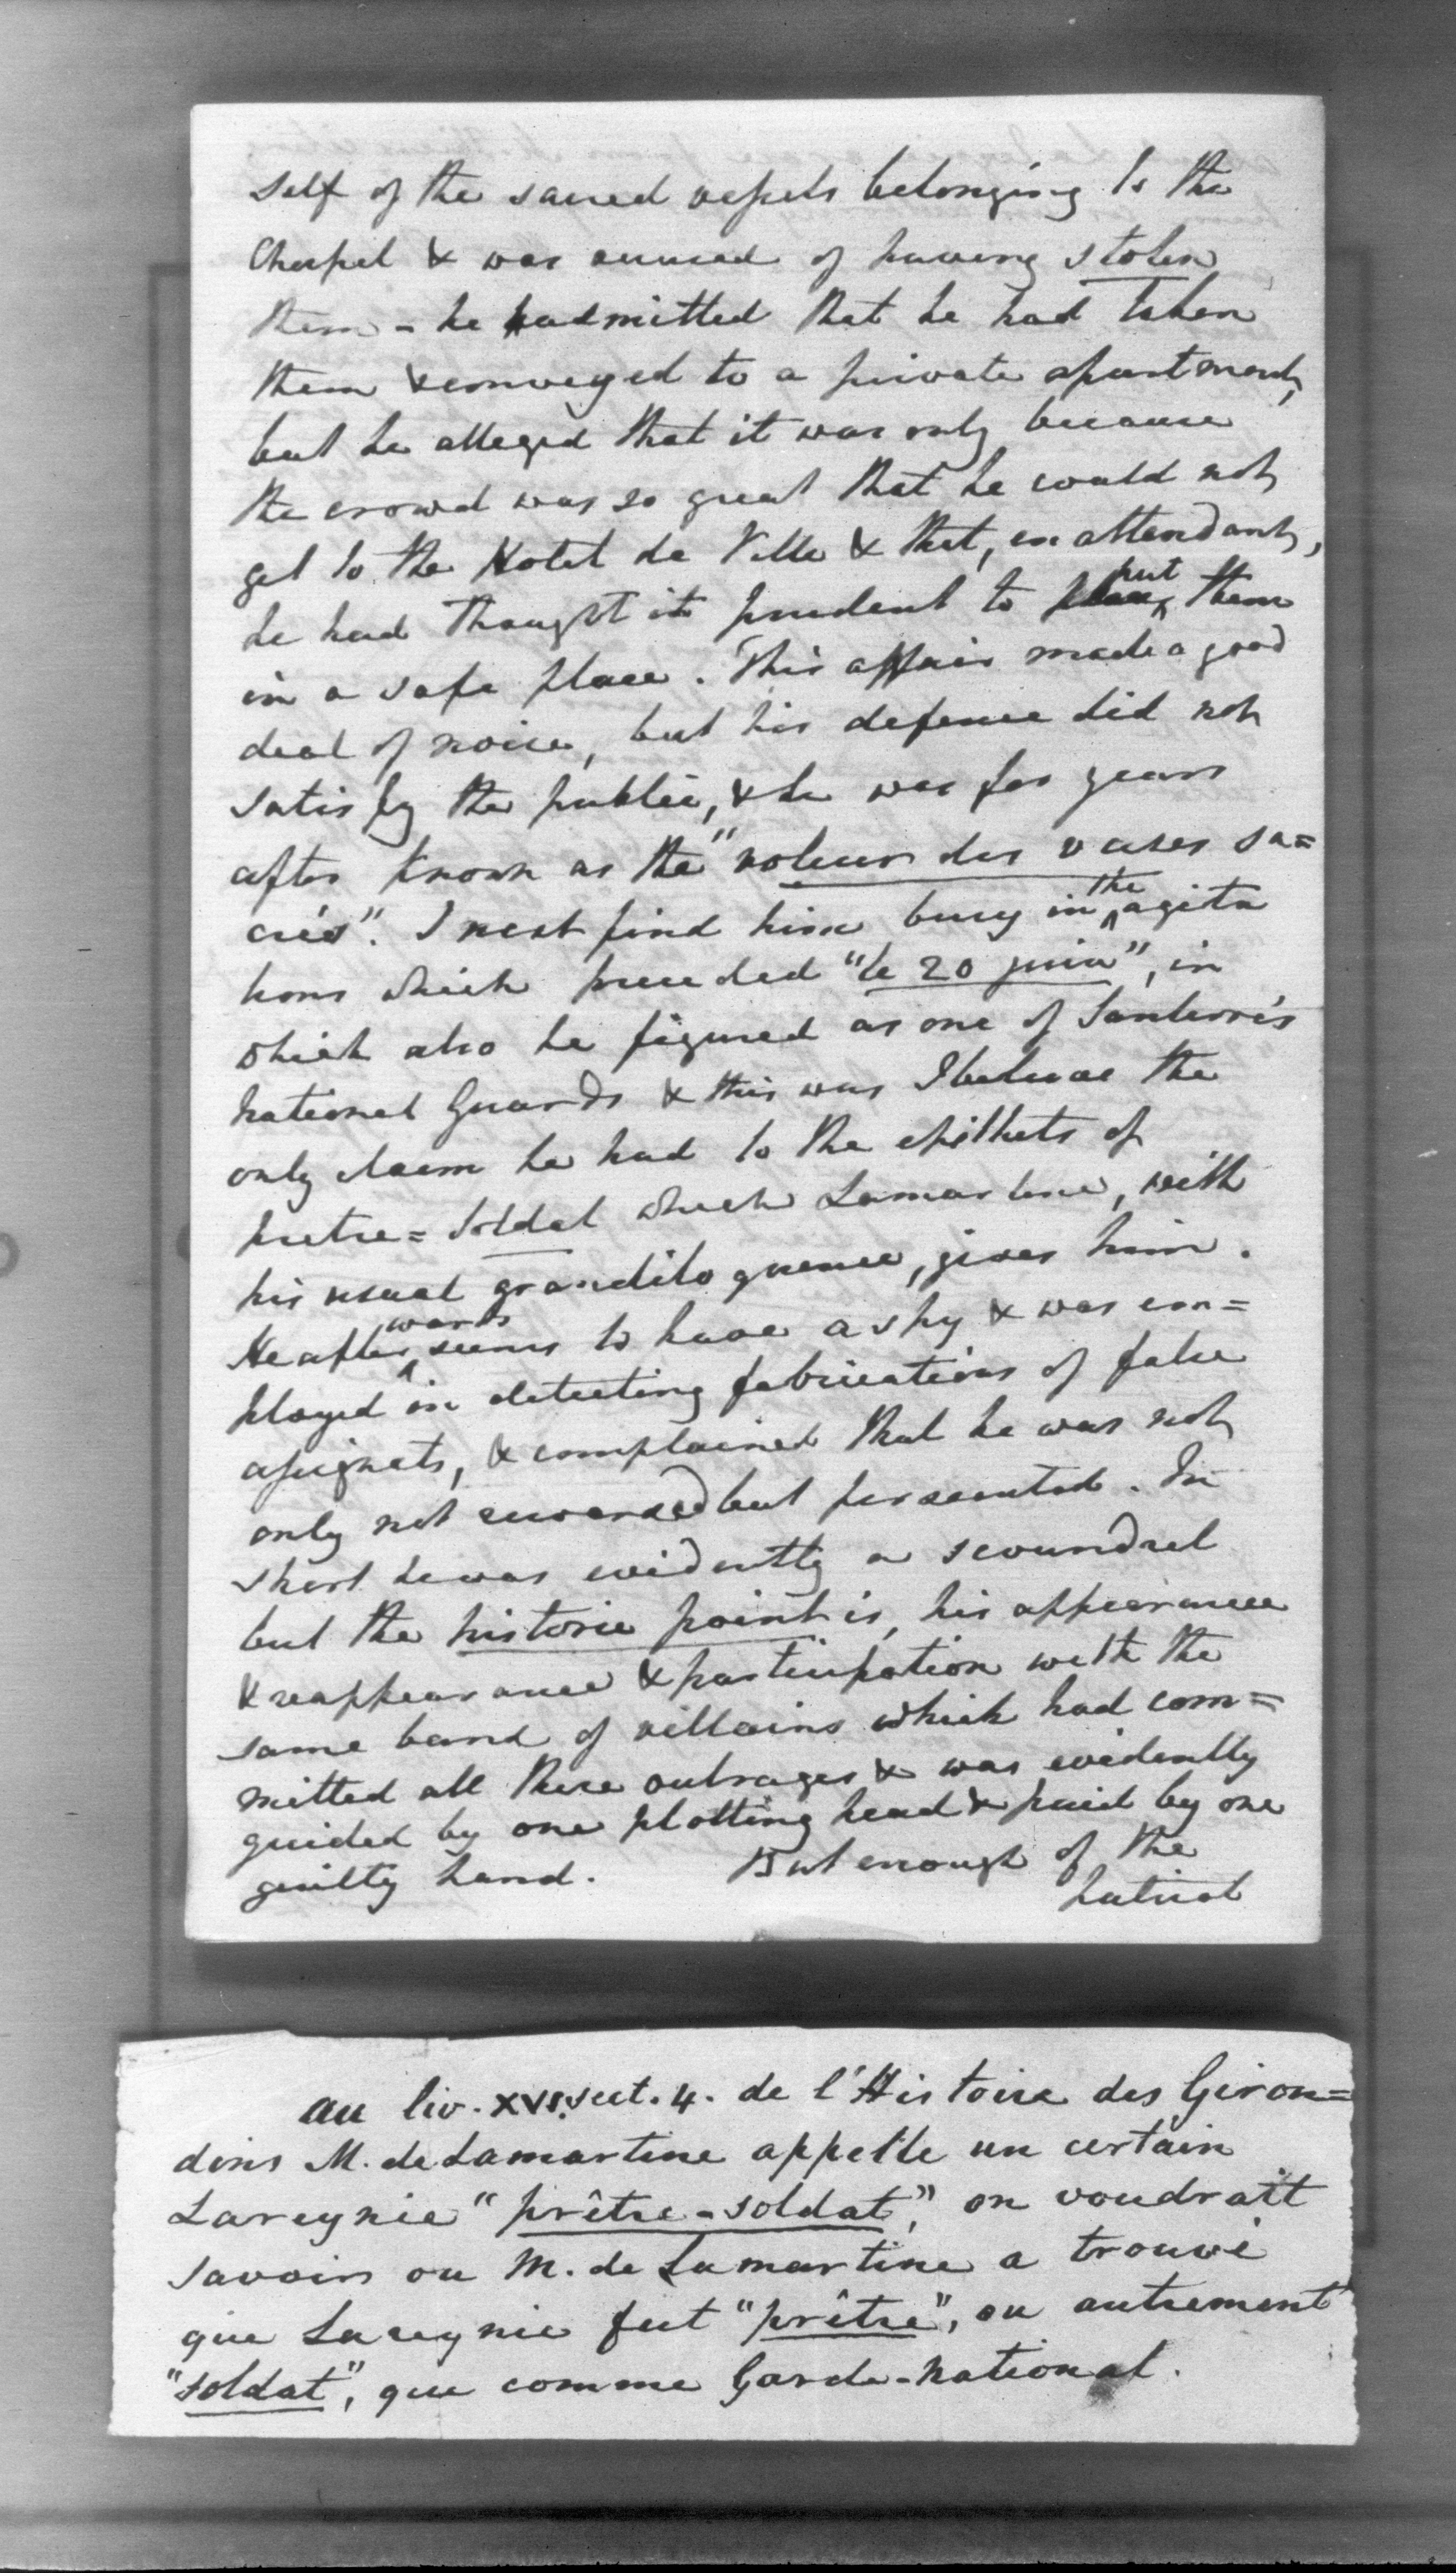 self of the sacred vessels belonging to the
Chapel & was accused of having stolen
them - he admitted that he had taken
them & conveyed to a private apartment,
but he alleged that it was only because
the crowd was so great that he could not
get to the Hotel de Ville & that, en attendant,
he had thought it prudent to put them
in a safe place. This affair made a good
deal of noise, but his defence did not
satisfy the public, & he was for years
after known as the "voleur des vases sa=
crés". I next find him busy in the agita
tions which preceded "le 20 juin", in
which also he figured as one of Santerre's
National Guards & this was I believe the
only claim he had to the epithets of
pretre=soldat which Lamartine, with
his usual grandiloquence, gives him.
He afterwards seems to have a spy & was em=
ployed in detecting fabrications of false
assignats, & complained that he was not
only not rewarded but persecuted. In
short he was evidently a scoundrel
but the historic point is, his appearance
& reappearance & participation with the
same band of villains which had com=
mitted all these outrages & was evidently
guided by one plotting head & paid by one
guilty hand. But enough of the
patriot
au liv. XVI. sect. 4. de l'Histoire des Giron=
dins M. de Lamartine appelle un certain
Lareynie "prêtre-soldat," on voudrait
savoir ou M. de Lamartine a trouvé
que Lareynie fut "prêtre", ou autrement
"soldat", que comme Garde-National.